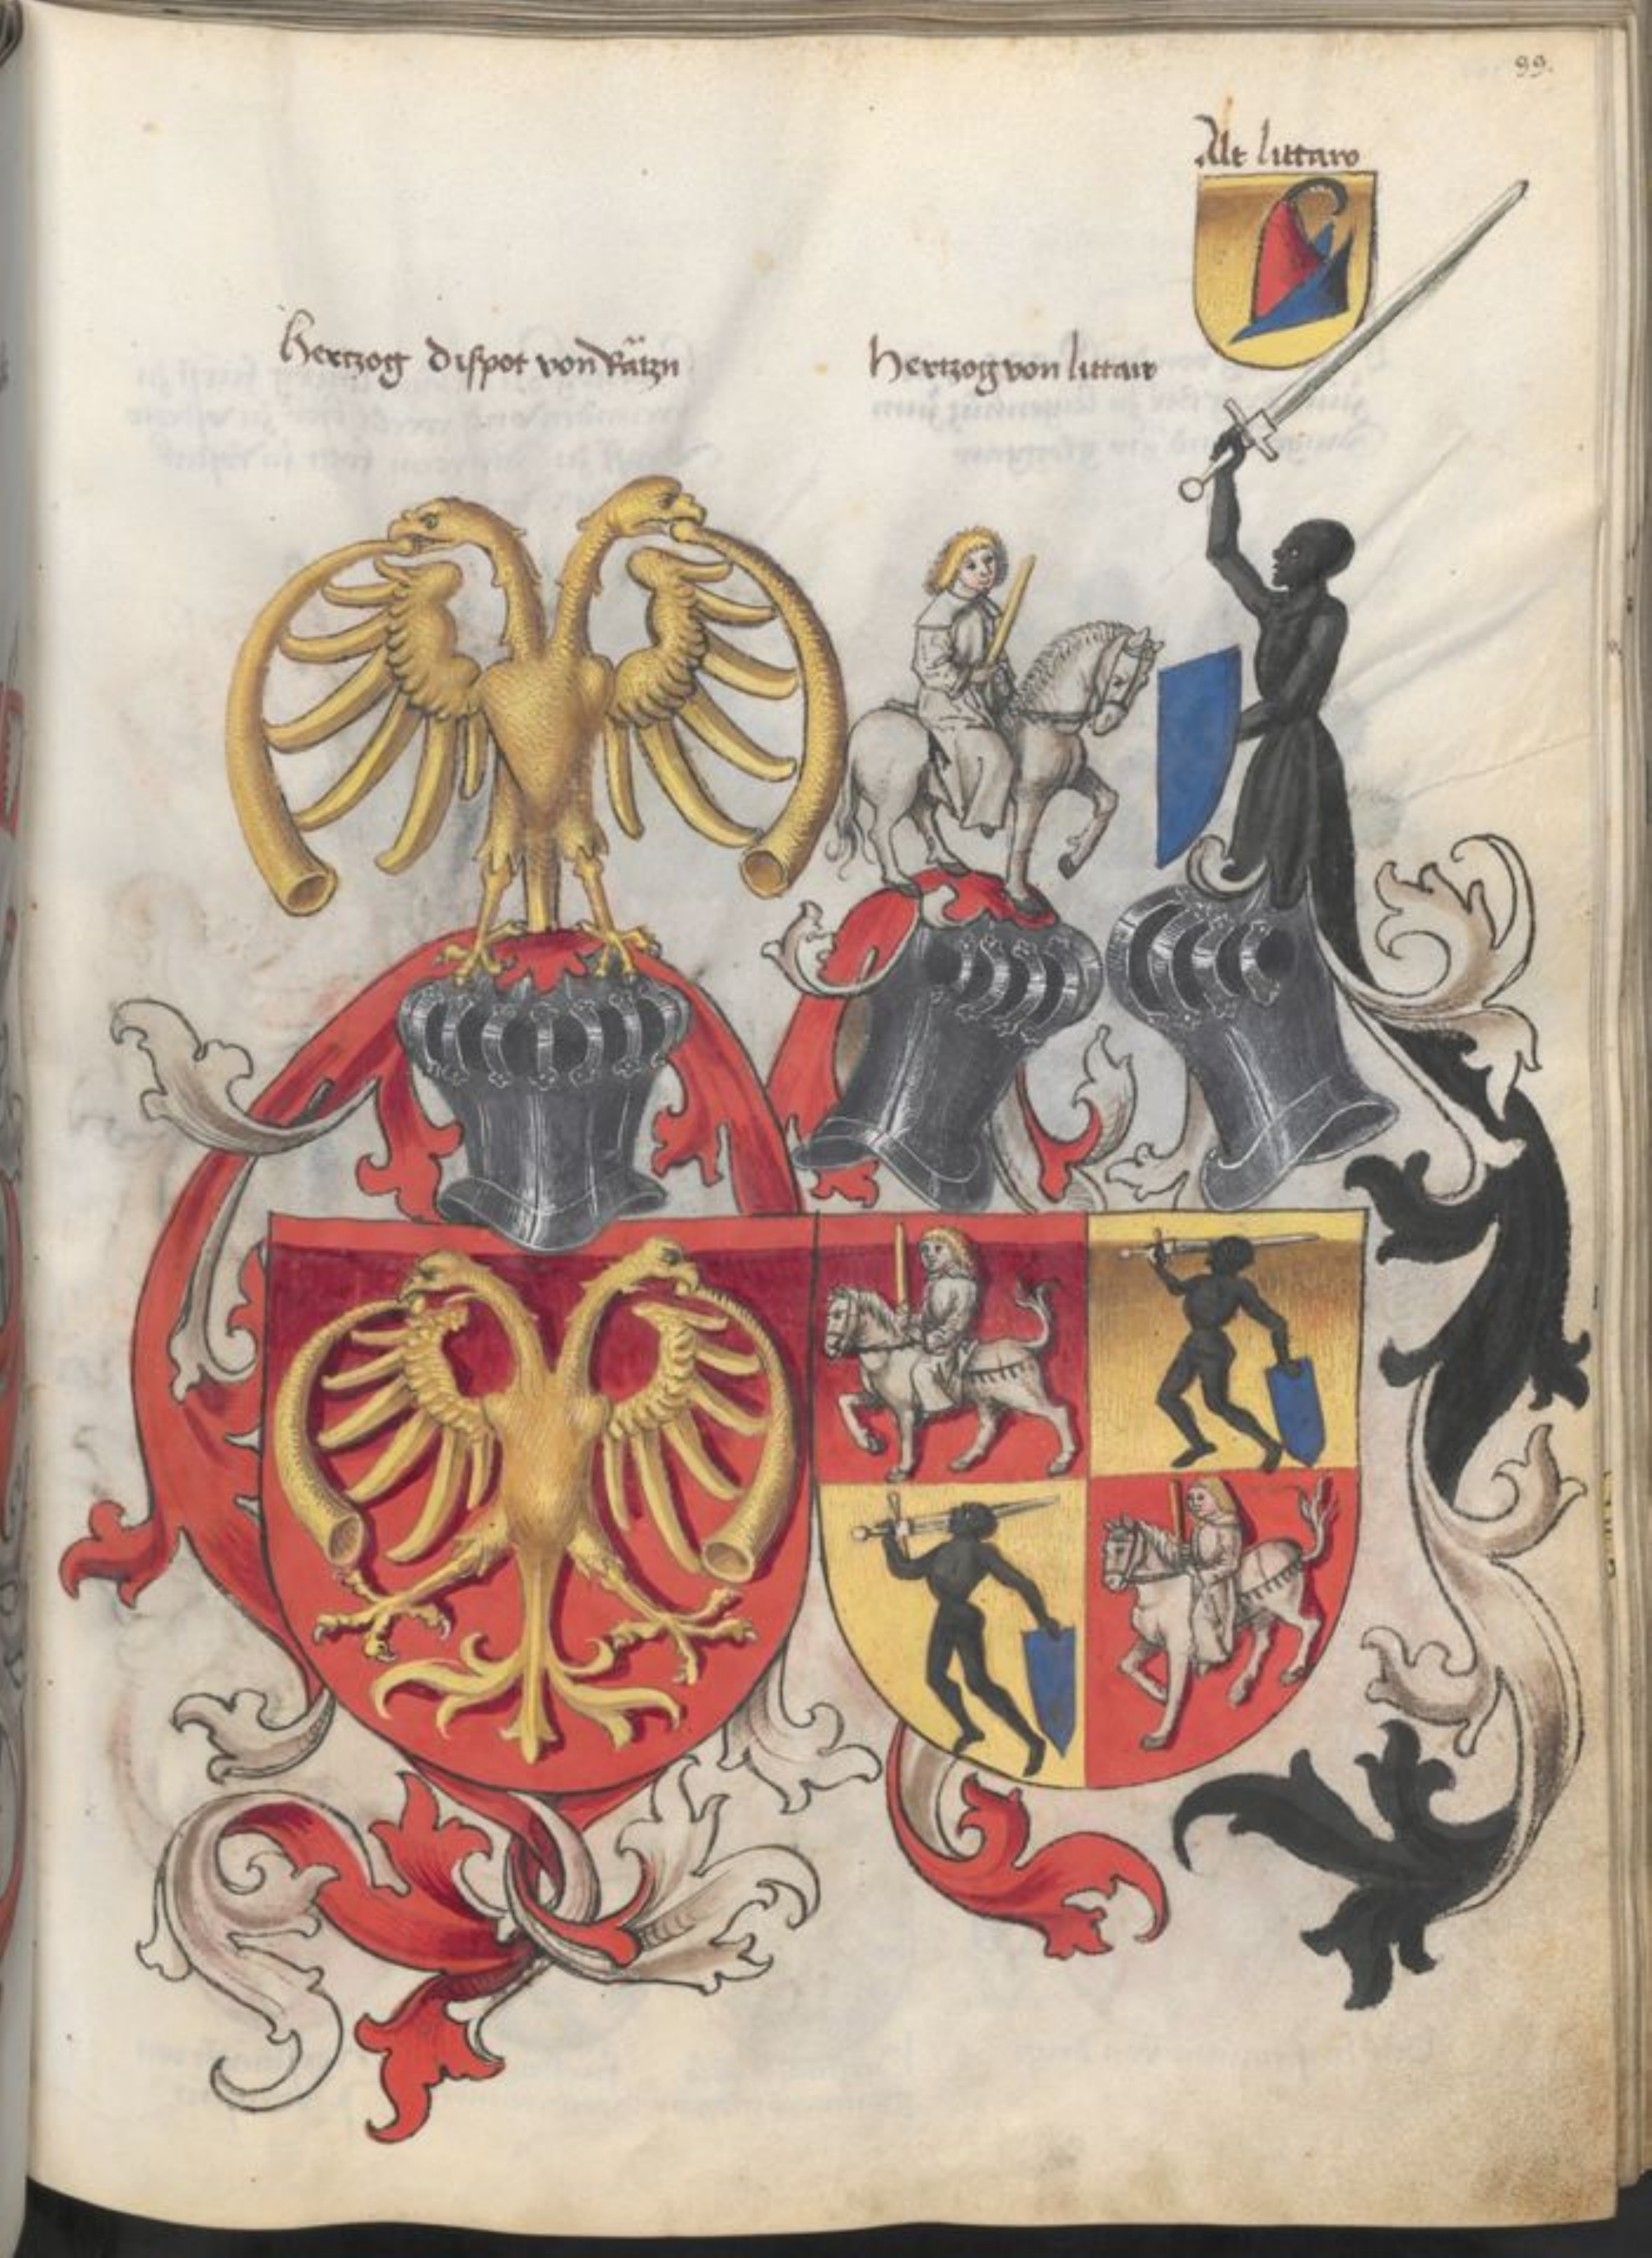 99.
Alt littaw
hertzog dispot von Rätzn
hertzog von littaw